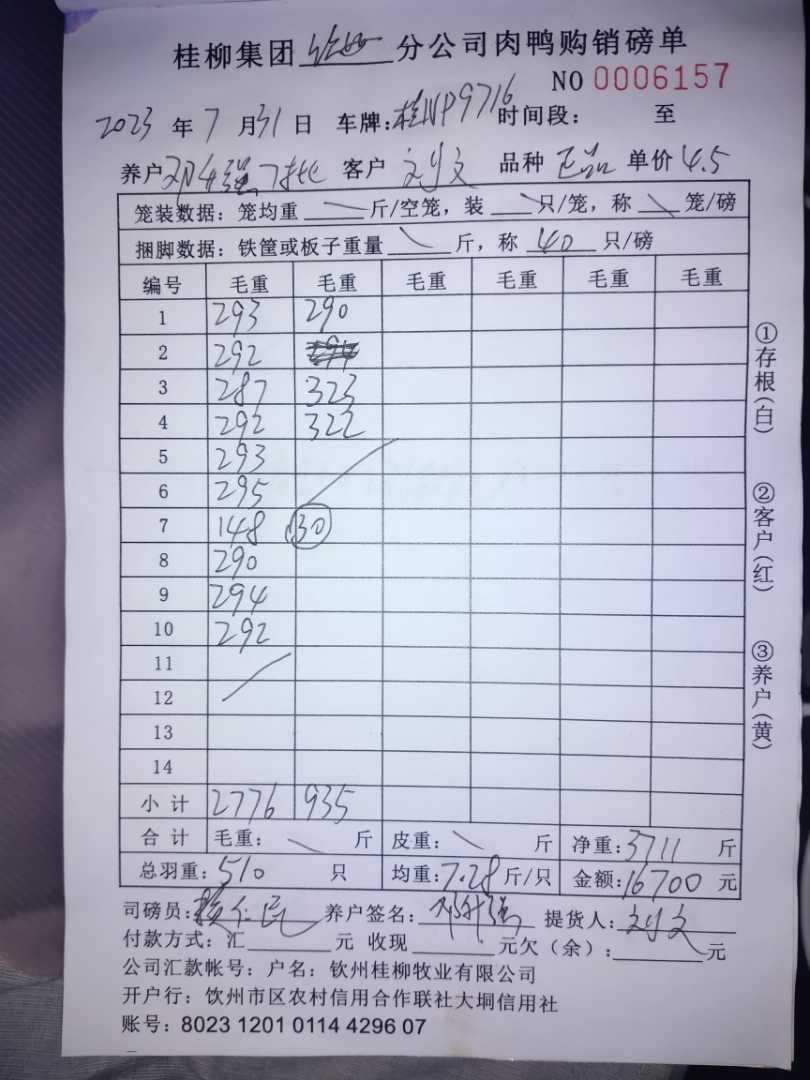 桂柳集团 分公司肉鸭购销磅单
NO 0006157
2023 年 7 月 31 日 车牌:桂NP9716 时间段: 至
养户 邓升强 7批 客户 刘文 品种 正品 单价 4.5
笼装数据: 笼均重 斤/空笼, 装 只/笼, 称 笼/磅
捆脚数据: 铁筐或板子重量 斤, 称 40 只/磅
编号 毛重 毛重 毛重 毛重 毛重 毛重
1 293 290
2 292
3 287 323
4 292 322
5 293
6 295
7 148 30
8 290
9 294
10 292
11
12
13
14
小计 2776 935
合计 毛重: 斤 皮重: 斤 净重: 3711 斤
总羽重: 510 只 均重: 7.28 斤/只 金额: 16700 元
司磅员: 养户签名: 邓升强 提货人: 刘文
付款方式: 汇 元 收现 元欠(余): 元
公司汇款帐号: 户名: 钦州桂柳牧业有限公司
开户行: 饮州市区农村信用合作联社大垌信用社
账号: 8023 1201 0114 4296 07
①存根(白)
②客户(红)
③养户(黄)